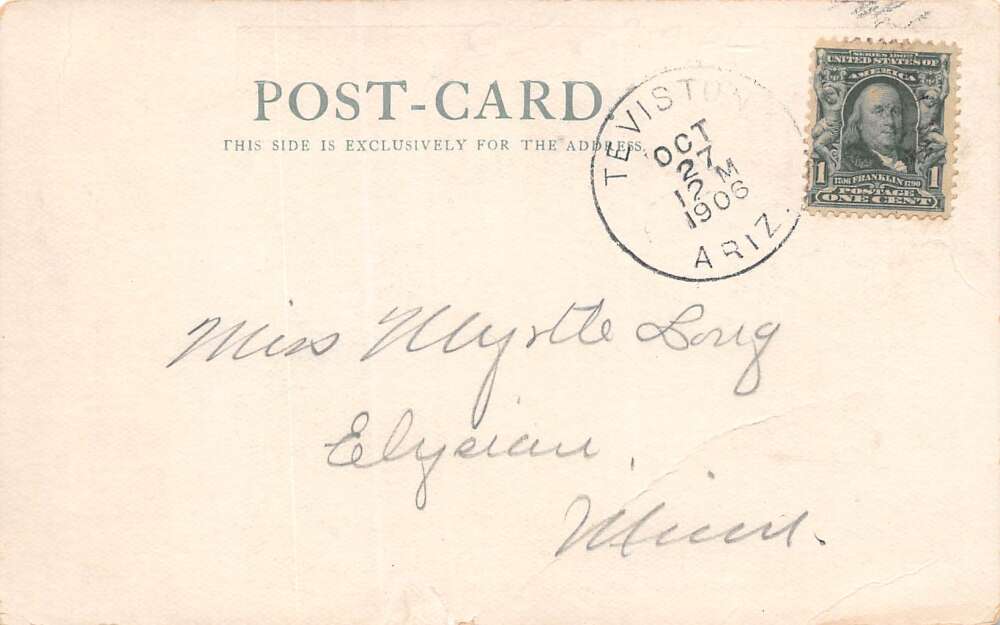 POST-CARD
THIS SIDE IS EXCLUSIVELY FOR THE ADDRESS.
TEVISTON
OCT
27
12 M
1906
ARIZ.
SERIES 1902
UNITED STATES OF
AMERICA
1 1706 FRANKLIN 1790 1
POSTAGE
ONE CENT
Miss Myrtle Long
Elysian,
Minn.